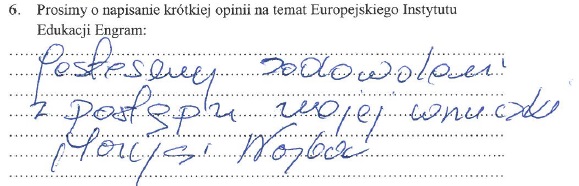 6. Prosimy o napisanie krótkiej opinii na temat Europejskiego Instytutu
Edukacji Engram:
Jesteśmy zadowoleni
z postępu mojej wnuczki